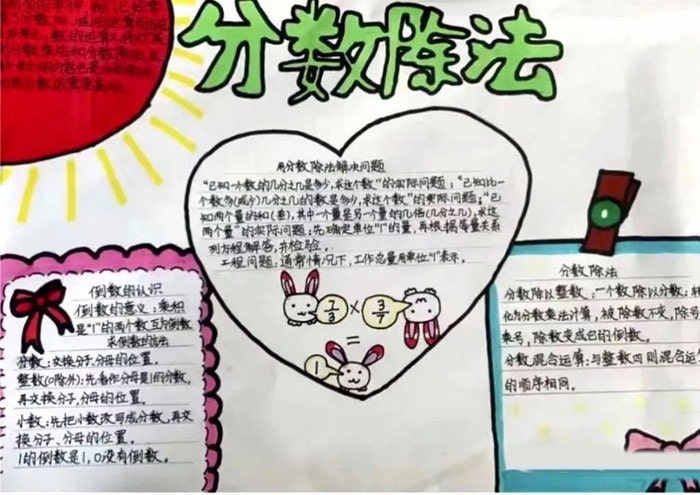 分数除法
用分数除法解决问题
"已知一个数的几分之几是多少,求这个数"的实际问题;"已知比一
个数多(或少)几分之几的数是多少,求这个数"的实际问题;"已
知两个量的和(差),其中一个量是另一个量的几倍(几分之几),求这
两个量"的实际问题:先确定单位"1"的量,再根据等量关系
列方程解答,并检验。
工程问题:通常情况下,工作总量用单位"1"表示。
7/3 × 3/7
=
1
倒数的认识
倒数的意义:乘积
是"1"的两个数互为倒数
求倒数的方法
分数:交换分子、分母的位置。
整数(0除外):先看作分母是1的分数,
再交换分子、分母的位置。
小数:先把小数改写成分数,再交
换分子、分母的位置。
1的倒数是1,0没有倒数。
分数除法
分数除以整数:一个数除以分数:转
化为分数乘法计算,被除数不变,除号
乘号,除数变成它的倒数。
分数混合运算:与整数四则混合运
的顺序相同。